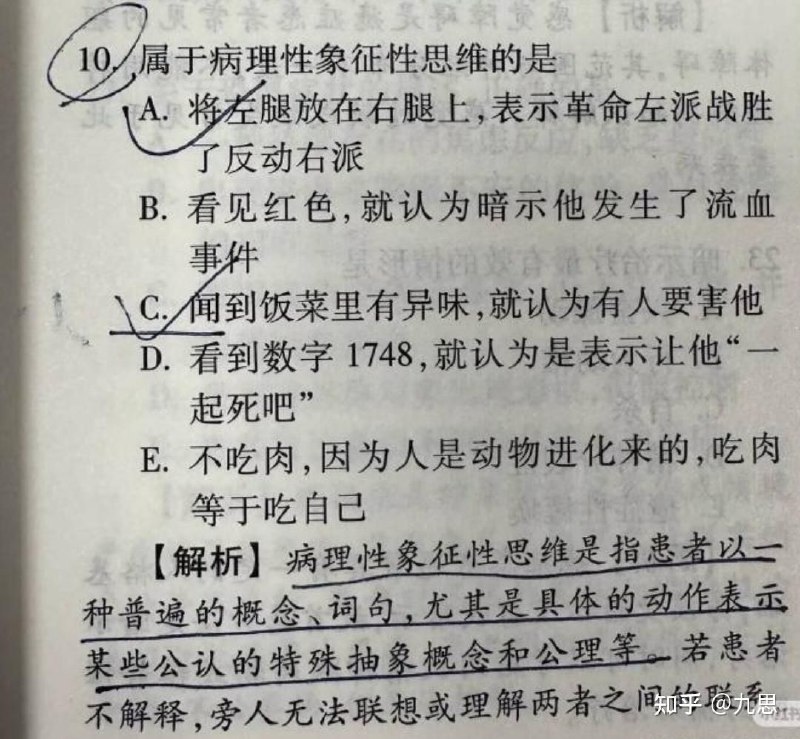 10. 属于病理性象征性思维的是
A. 将左腿放在右腿上,表示革命左派战胜
了反动右派
B. 看见红色,就认为暗示他发生了流血
事件
C. 闻到饭菜里有异味,就认为有人要害他
D. 看到数字 1748,就认为是表示让他“一
起死吧”
E. 不吃肉,因为人是动物进化来的,吃肉
等于吃自己
【解析】 病理性象征性思维是指患者以一
种普遍的概念、词句,尤其是具体的动作表示
某些公认的特殊抽象概念和公理等。若患者
不解释,旁人无法联想或理解两者之间的联系
知乎 @九思